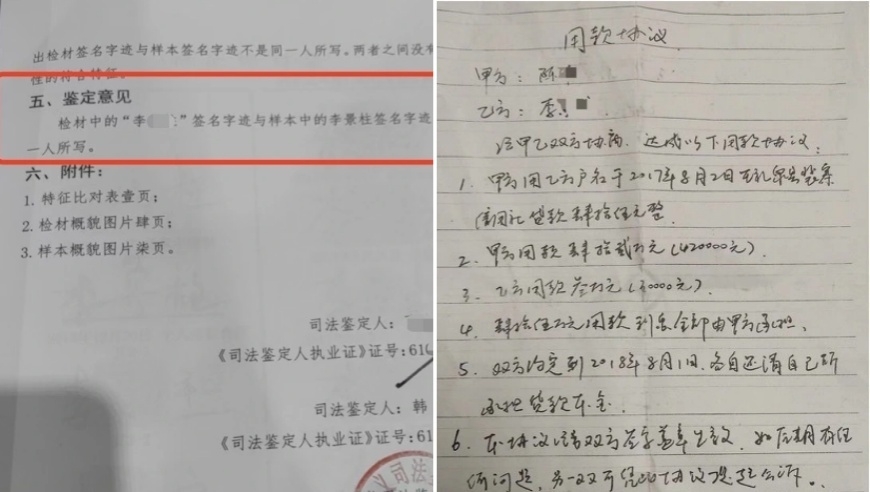 出检材签名字迹与样本签名字迹不是同一人所写。两者之间没有
性的符合特征。
五、鉴定意见
检材中的“李 ”签名字迹与样本中的李景柱签名字迹
一人所写。
六、附件:
1.特征比对表壹页;
2.检材概貌图片肆页;
3.样本概貌图片柒页。
司法鉴定人:
《司法鉴定人执业证》证号:610
司法鉴定人:韩
《司法鉴定人执业证》证号:61
司法
用款协议
甲方:陈
乙方:李
经甲乙双方协商,达成以下用款协议:
1.甲方用乙方户名于2017年8月2日在礼泉县
信用社贷款肆拾伍万元整.
2.甲方用款肆拾贰万元(420000元).
3.乙方用款叁万元(30000元).
4.肆拾伍万元用款利息全部由甲方承担.
5.双方约定到2018年8月1日,各自还清自己所
承担贷款本金.
6.本协议经双方签字盖章生效,如后期有任
何问题,另一双可凭此协议提起公诉.